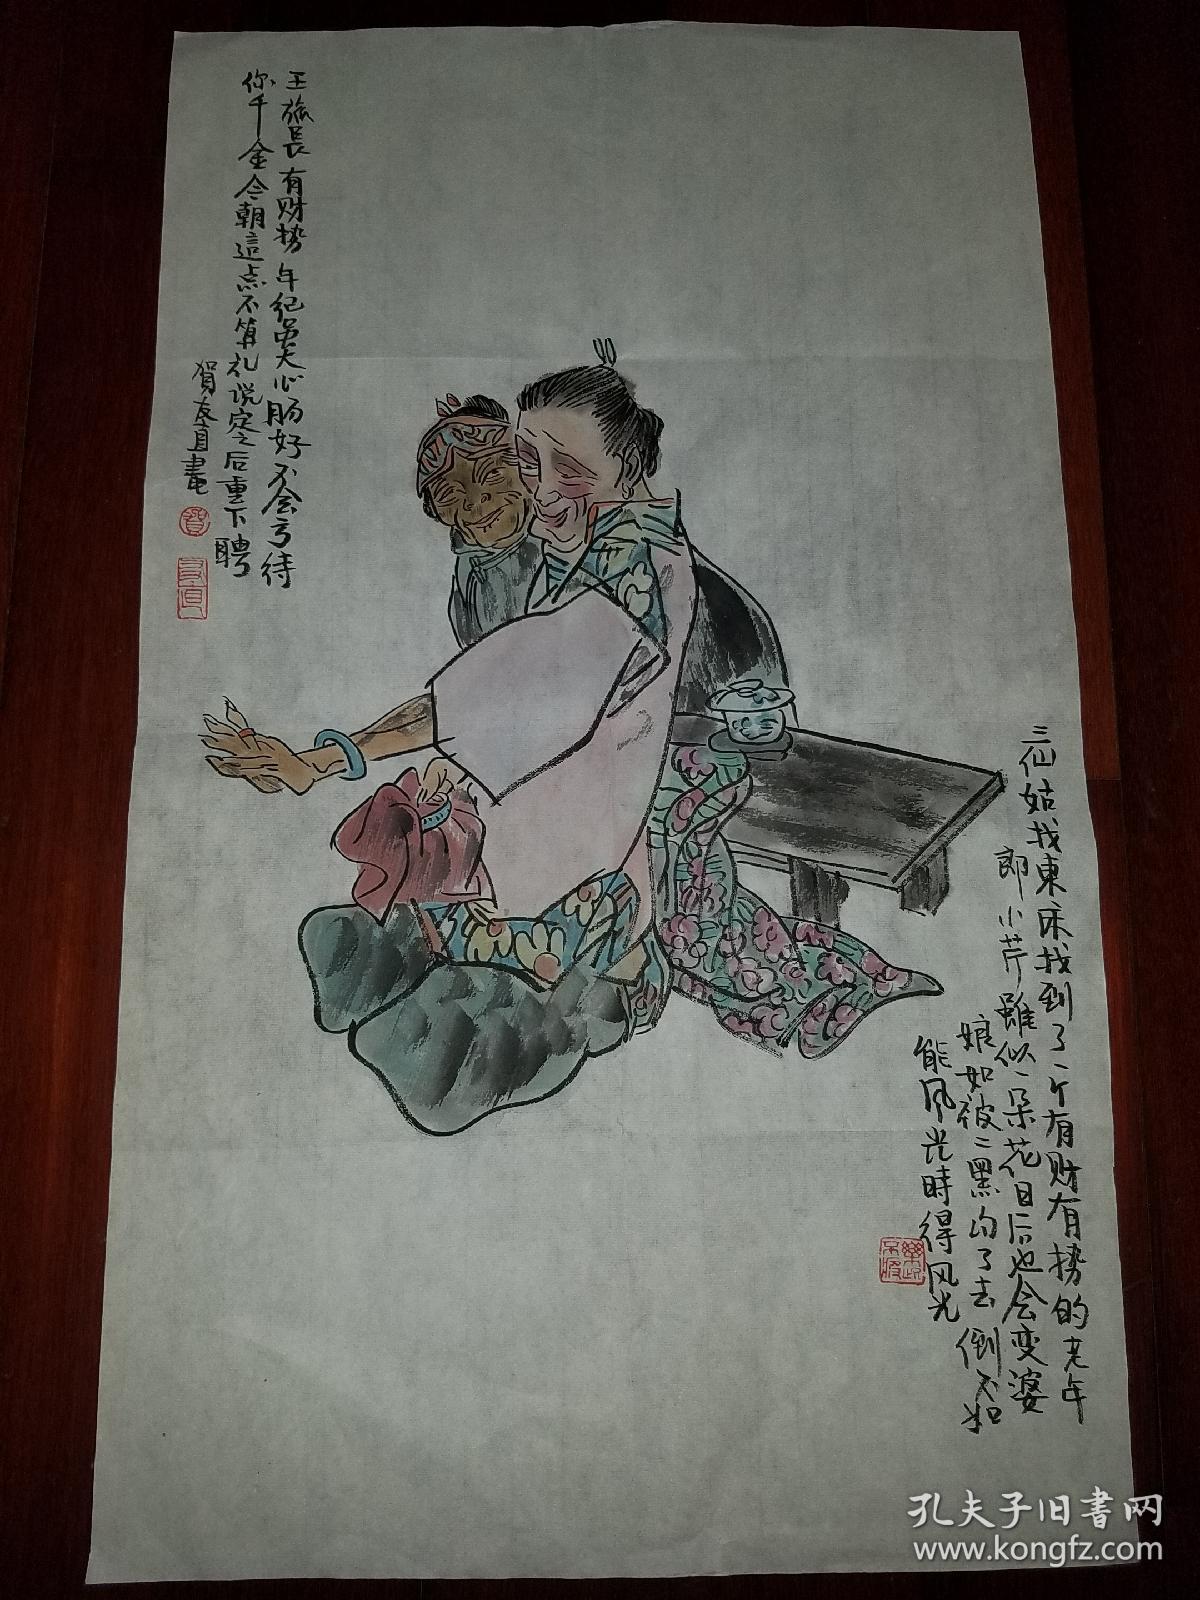 三仙姑找東床找到了一个有财有势的老年
郎小芹雖似一朵花日后也会变婆
娘如被二黑勾了去倒不如
能风光時得风光
王旅長有财势年纪虽大心肠好不会亏待
你千金今朝這点不算礼说定之后重下聘
賀友直畫
賀
友直
孔夫子旧書网
www.kongfz.com